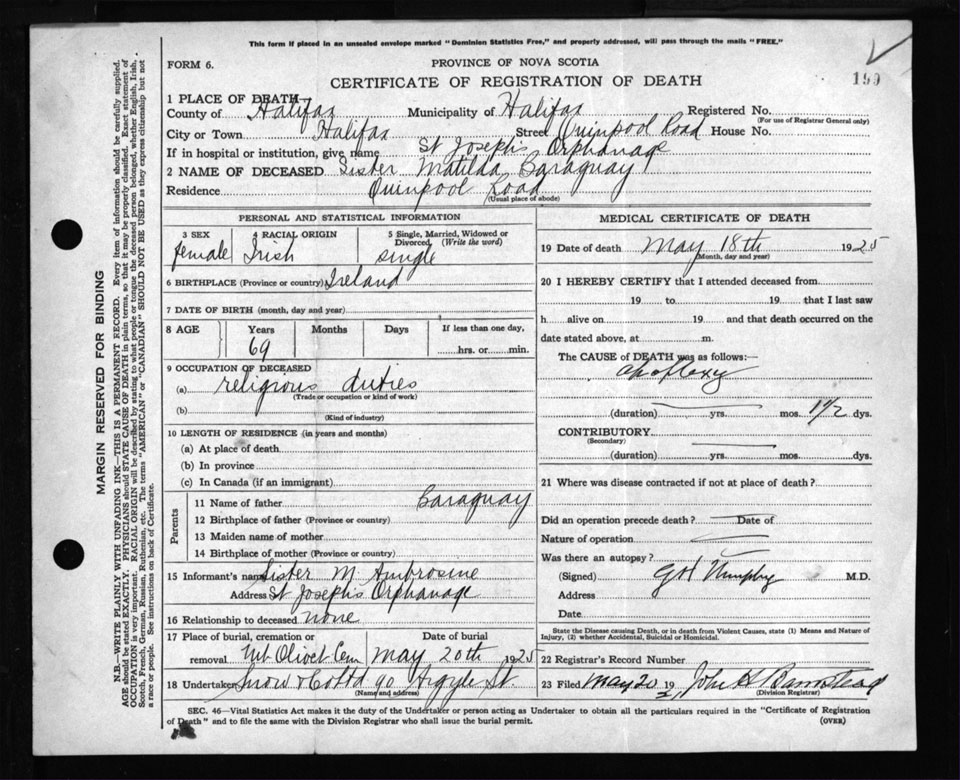 This form if placed in an unsealed envelope marked "Dominion Statistics Free," and properly addressed, will pass through the mails "FREE."
FORM 6.
PROVINCE OF NOVA SCOTIA
199
CERTIFICATE OF REGISTRATION OF DEATH
1 PLACE OF DEATH
County of Halifax Municipality of Halifax Registered No.
(For use of Registrar General only)
City or Town Halifax Street Quinpool Road House No.
If in hospital or institution, give name St Joseph's Orphanage
2 NAME OF DECEASED Sister Matilda Caraguay
Residence Quinpool Road
(Usual place of abode)
PERSONAL AND STATISTICAL INFORMATION
3 SEX 4 RACIAL ORIGIN 5 Single, Married, Widowed or Divorced (Write the word)
female Irish single
6 BIRTHPLACE (Province or country) Ireland
7 DATE OF BIRTH (month, day and year)
8 AGE Years Months Days If less than one day,
69 hrs. or min.
9 OCCUPATION OF DECEASED
(a) religious duties
(Trade or occupation or kind of work)
(b)
(Kind of industry)
10 LENGTH OF RESIDENCE (in years and months)
(a) At place of death
(b) In province
(c) In Canada (if an immigrant)
Parents
11 Name of father Caraguay
12 Birthplace of father (Province or country)
13 Maiden name of mother
14 Birthplace of mother (Province or Country)
15 Informant's name Sister M. Ambrosine
Address St Joseph's Orphanage
16 Relationship to deceased none
17 Place of burial, cremation or Date of burial
removal Mt Olivet Cem May 20th 1925
18 Undertaker Snow & Co Ltd 90 Argyle St.
(Name and address)
MEDICAL CERTIFICATE OF DEATH
19 Date of death May 18th 1925
(Month, day and year)
20 I HEREBY CERTIFY that I attended deceased from
19 to 19 that I last saw
h alive on 19 and that death occurred on the
date stated above, at m.
The CAUSE of DEATH was as follows:—
apoplexy
(duration) yrs. mos. 1 1/2 dys.
CONTRIBUTORY
(Secondary)
(duration) yrs. mos. dys.
21 Where was disease contracted if not at place of death?
Did an operation precede death? Date of
Nature of operation
Was there an autopsy?
(Signed) G H Murphy M.D.
Address
Date
State the Disease causing Death, or in death from Violent Causes, state (1) Means and Nature of
Injury, (2) whether Accidental, Suicidal or Homicidal.
22 Registrar's Record Number
23 Filed May 20 19 John H Barnstead
(Division Registrar)
SEC. 46—Vital Statistics Act makes it the duty of the Undertaker or person acting as Undertaker to obtain all the particulars required in the "Certificate of Registration
of Death" and to file the same with the Division Registrar who shall issue the burial permit.
(OVER)
MARGIN RESERVED FOR BINDING
N.B.—WRITE PLAINLY WITH UNFADING INK—THIS IS A PERMANENT RECORD. Every item of information should be carefully supplied.
AGE should be stated EXACTLY. PHYSICIANS should STATE CAUSE OF DEATH in plain terms, so that it may be properly classified. Exact statement of
OCCUPATION is very important. RACIAL ORIGIN will be described by stating to what people or tongue the deceased person belonged, whether English, Irish,
Scotch, French, German, Russian, Ruthenian, etc. The terms "AMERICAN" or "CANADIAN" SHOULD NOT BE USED as they express citizenship but not
a race or people. See instructions on back of Certificate.